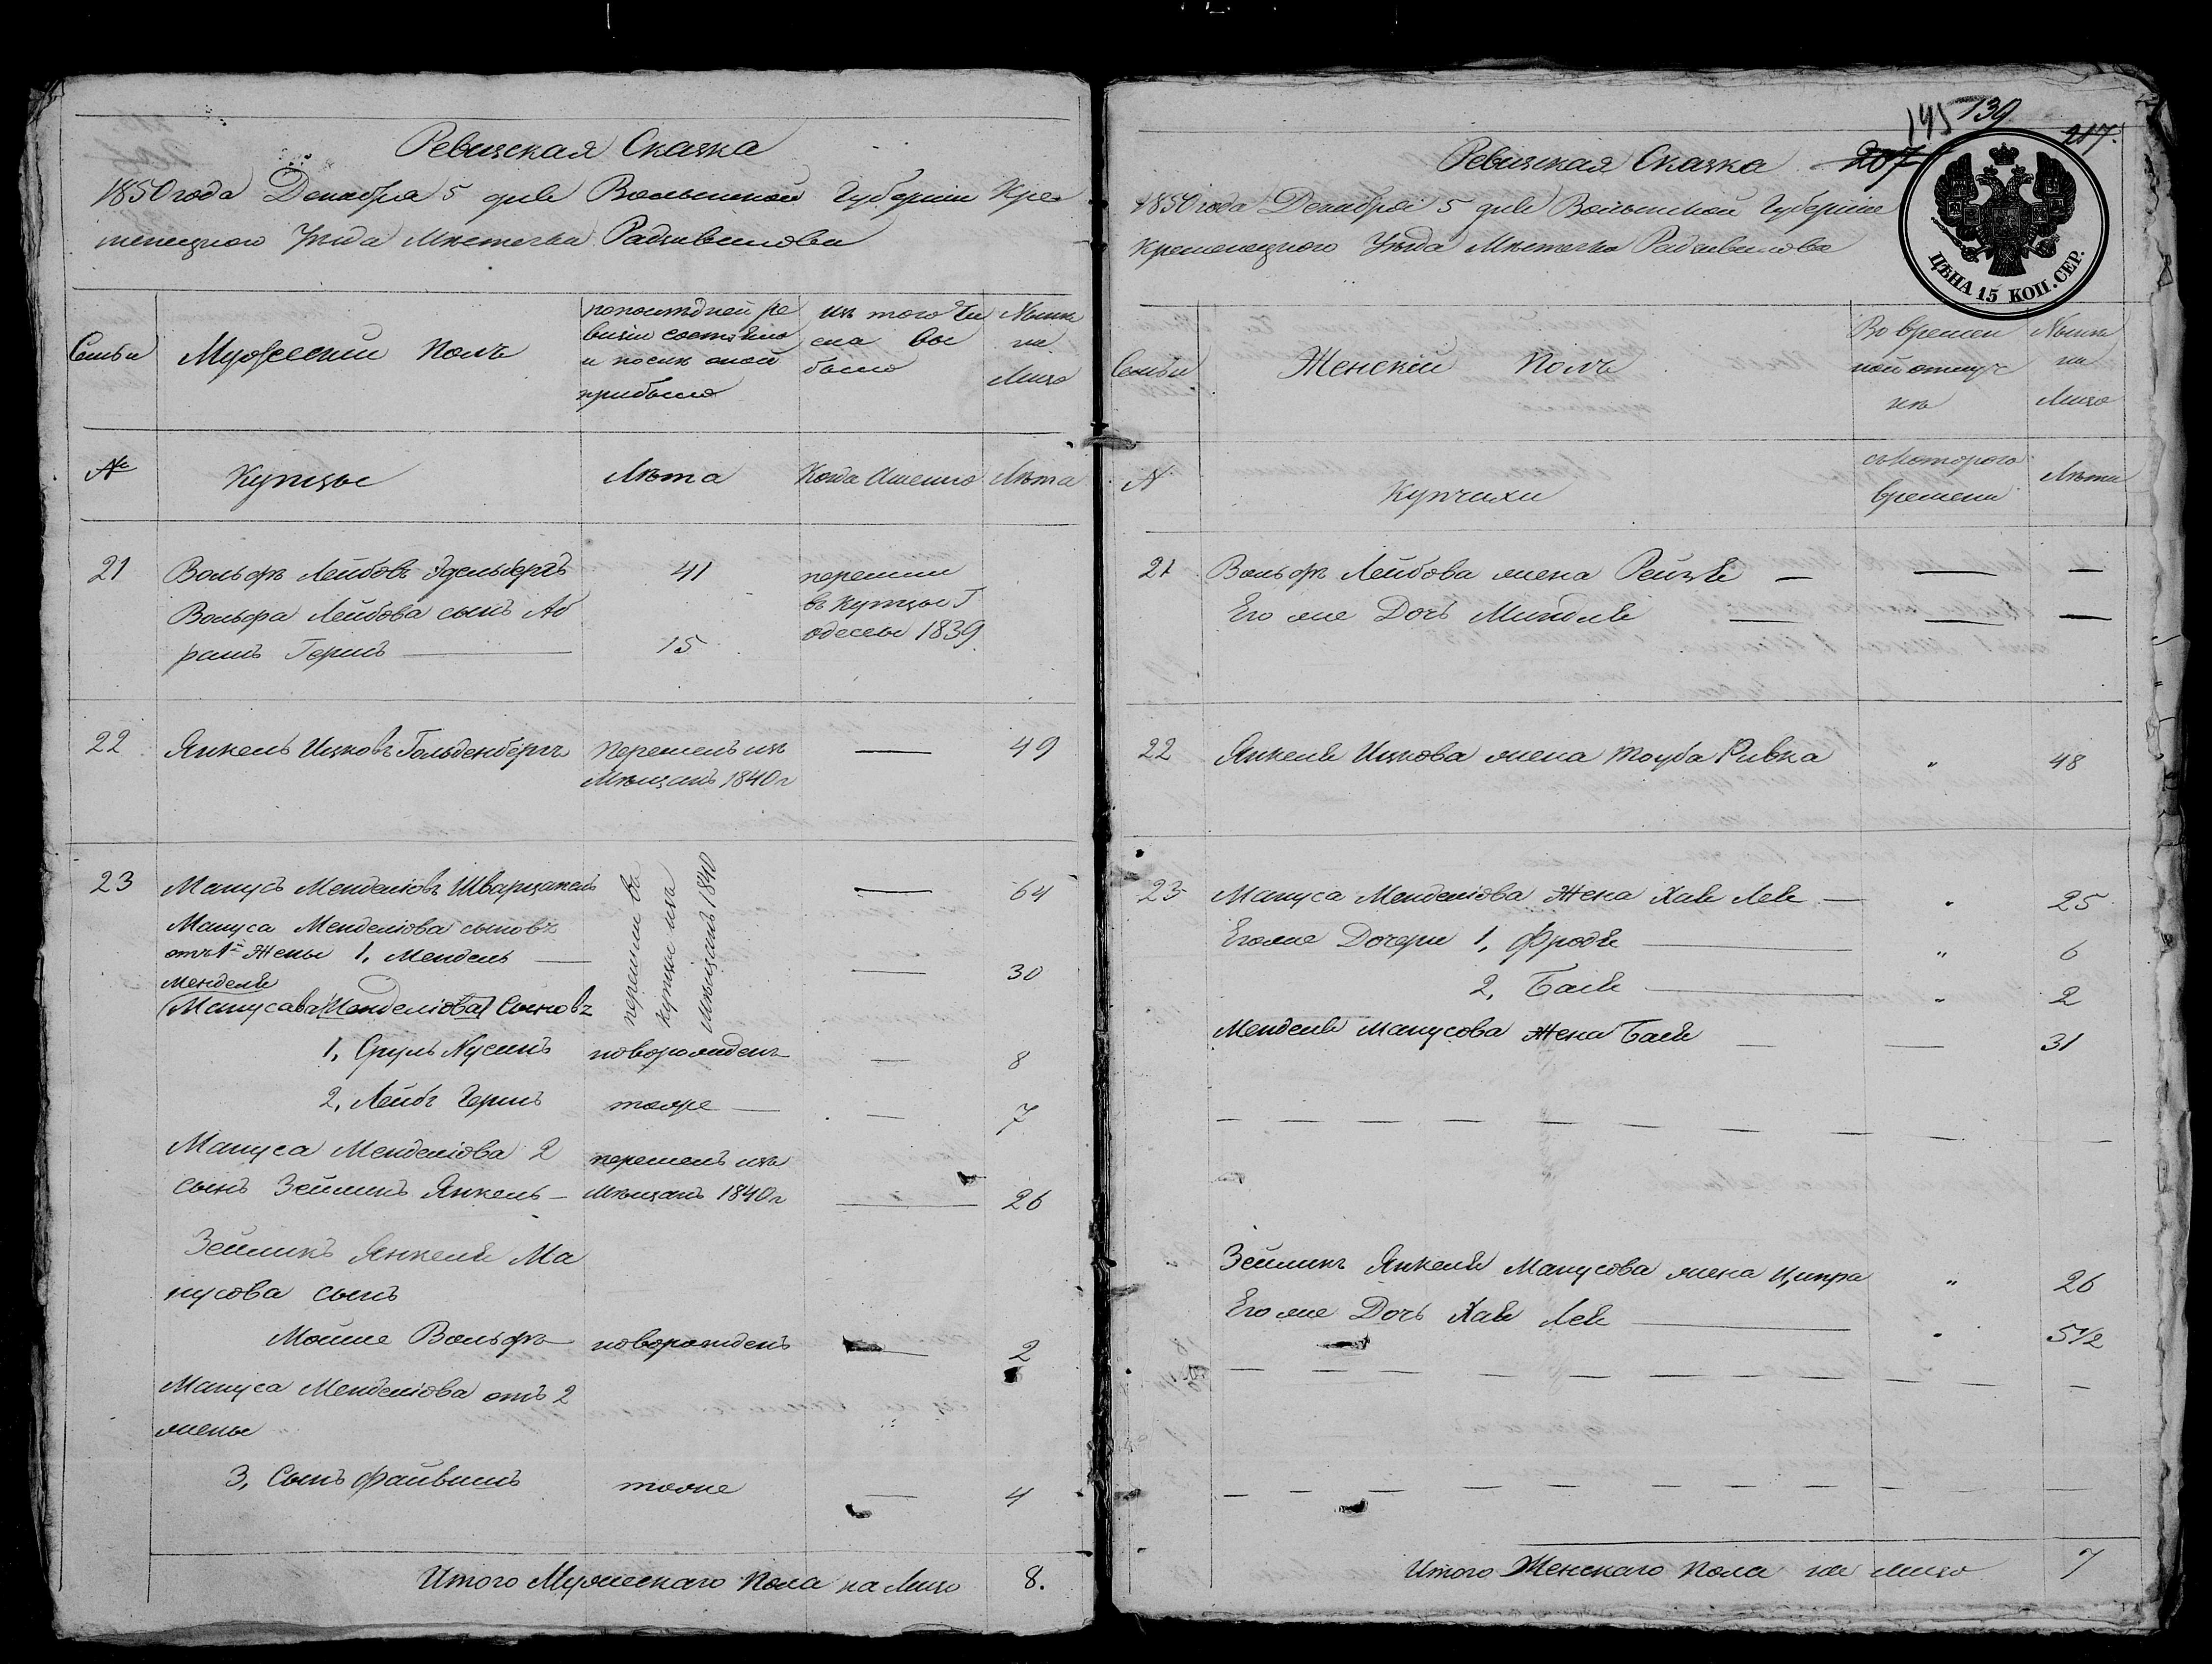 Ревизская Сказка
1850 года Декабря 5 дня Волынской Губернии Кре
менецкого Уезда Мястечка Радзивилова
Семьи
Мужеский полъ
попоследней ре
визіи состояло
и после оной
прибыло
изъ того чи
сла вы
было
Ныне
на
Лицо
№
Купцы
Лѣта
Когда Именно
Лѣта
21
Вольфъ Лейбовъ Эдельбергъ
41
перешли
Вольфа Лейбова сынъ Аб
въ купцы Г
рамъ Гершъ
15
одессы 1839
22
Янкель Ицковъ Гольденбергъ
Перешелъ изъ
49
Мѣщанъ 1840 г
23
Манусъ Менделіовъ Шварцапель
перешли въ
купцы изъ
Мѣщанъ 1840
64
Мануса Менделіова сыновъ
отъ 1й Жены 1, Мендель
30
Менделя
Манусова (Менделіова) Сыновъ
1, Сруль Нусинъ
новорожденъ
8
2, Лейбъ Гершъ
тоже
7
Мануса Менделіова 2
перешелъ изъ
сынъ Зейликъ Янкель
Мѣщанъ 1840 г
26
Зейликъ Янкеля Ма
нусова сынъ
Мошие Вольфъ
новорожденъ
2
Мануса Менделіова отъ 2
жены
3, Сынъ Файвишъ
тоже
4
Итого Мужескаго Пола на Лицо
8.
145
139
207
217.
Ревизская Сказка
ЦѢНА 15 КОП. СЕР.
1850 года Декабря 5 дня Волынской Губерніи
Кременецкого Уѣзда Мѣстечка Радзивилова
Семьи
Женскій Полъ
Во времен
ной отлуч
кѣ
Ныне
на
Лицо
№
Купчихи
съ которого
времени
Лѣта
21
Вольфъ Лейбова жена Рейзя
Его же Дочь Миндля
22
Янкеля Ицкова жена Тоуба Ривка
48
23
Мануса Менделіова Жена Хая Лея
25
Его же Дочери 1, Фродя
6
2, Бася
2
Менделя Манусова Жена Бася
31
Зейликъ Янкеля Манусова жена Ципра
26
Его же Дочь Хая Лея
5 1/2
Итого Женскаго Пола на лицо
7